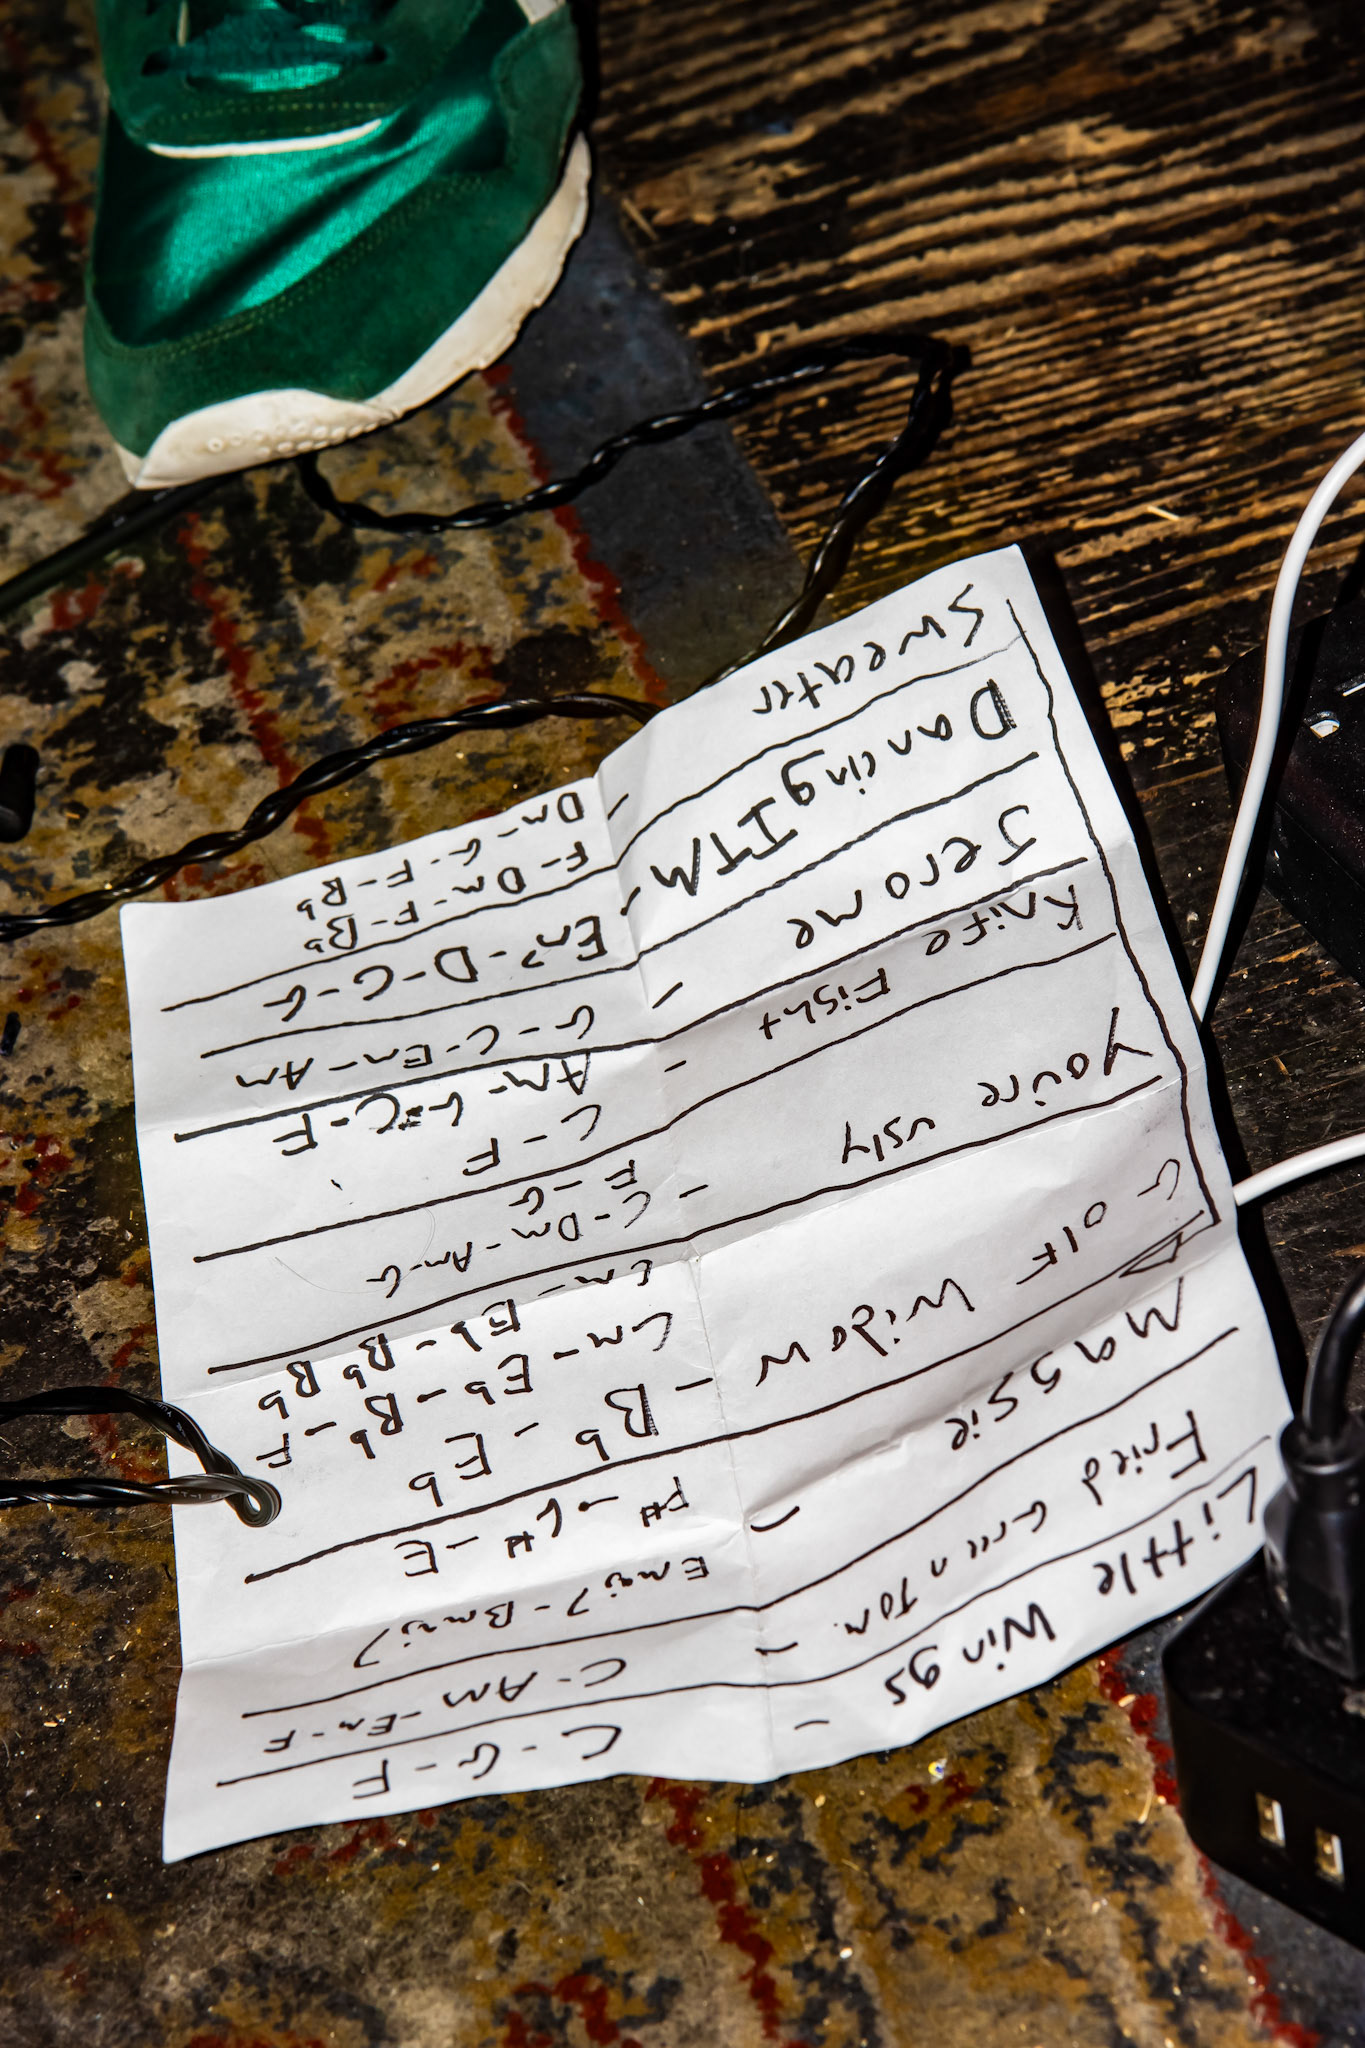 Little Wings - C-G-F
Fried Green Tom. - C-Am-Em-F
Maggie - Emaj7-Bmaj7
F#-C#-E
Golf Widow - Bb-Eb
Cm-Eb-Bb-F
Cm-Eb-Bb Bb
You're ugly - C-Dm-Am-G
F-G
Knife Fight - C-F
Am-G-C-F
Jerome - G-C-Em-Am
Dancing ITM - Em7-D-C-G
Sweater - F-Dm-F-Bb
Dm-G-F-Bb